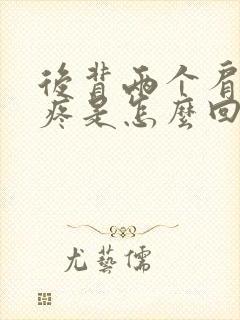 後背兩个肩
疼是怎麼回
尤藝儒